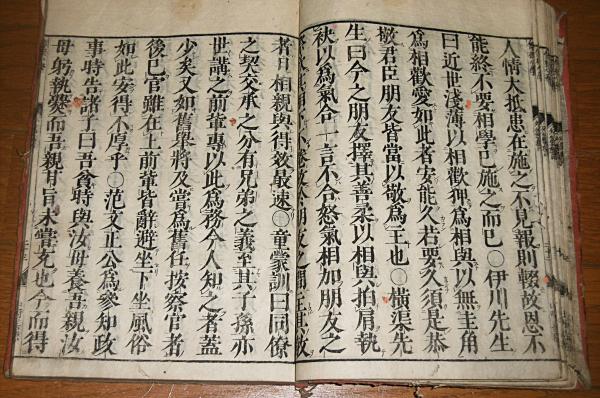 人情大抵患在施之不見報則輟故恩不
能終不要相學已施之而已○伊川先生
曰近世淺薄以相歡狎爲相與以無圭角
爲相歡愛如此者安能久若要久須是恭
敬君臣朋友皆當以敬爲主也○橫渠先
生曰今之朋友擇其善柔以相與拍肩執
袂以爲氣合一言不合怒氣相加朋友之
際欲其相下不倦故於朋友之間主其敬
者日相親與得效最速○童蒙訓曰同僚
之契交承之分有兄弟之義至其子孫亦
世講之前輩專以此爲務今人知之者蓋
少矣又如舊舉將及嘗爲舊任按察官者
後已官雖在上前輩皆辭避坐下坐風俗
如此安得不厚乎○范文正公爲參知政
事時告諸子曰吾貧時與汝母養吾親汝
母躬執爨而吾親甘旨未嘗充也今而得